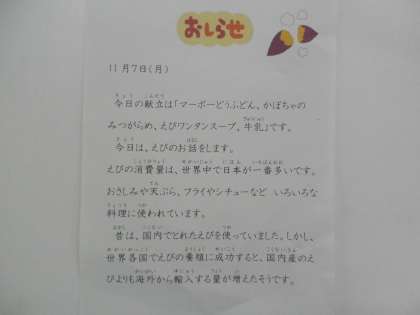 おしらせ
11月7日(月)
今日の献立は「マーボーどうふどん、かぼちゃの
みつがらめ、えびワンタンスープ、牛乳」です。
今日は、えびのお話をします。
えびの消費量は、世界中で日本が一番多いです。
おさしみや天ぷら、フライやシチューなど いろいろな
料理に使われています。
昔は、国内でとれたえびを使っていました。しかし、
世界各国でえびの養殖に成功すると、国内産のえ
びよりも海外から輸入する量が増えたそうです。